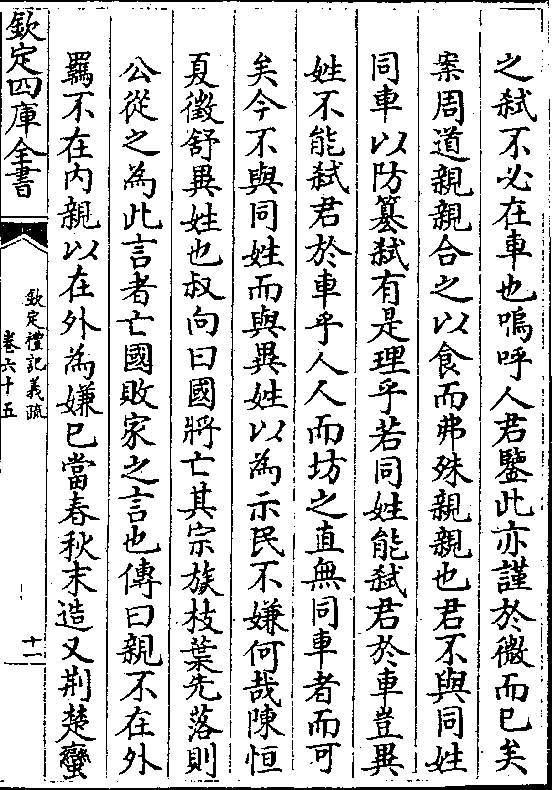 之弑不必在車也嗚呼人君鑒此亦謹於微而已矣
案周道親親合之以食而弗殊親親也君不與同姓
同車以防簒弑有是理乎若同姓能弑君於車豈異
姓不能弑君於車乎人人而坊之直無同車者而可
矣今不與同姓而與異姓以為示民不嫌何哉陳恒
夏徵舒異姓也叔向曰國將亡其宗族枝葉先落則
公從之為此言者亡國敗家之言也傳曰親不在外
羈不在内親以在外為嫌已當春秋末造又荆楚蠻
欽定四庫全書
欽定禮記義疏
卷六十五
十一